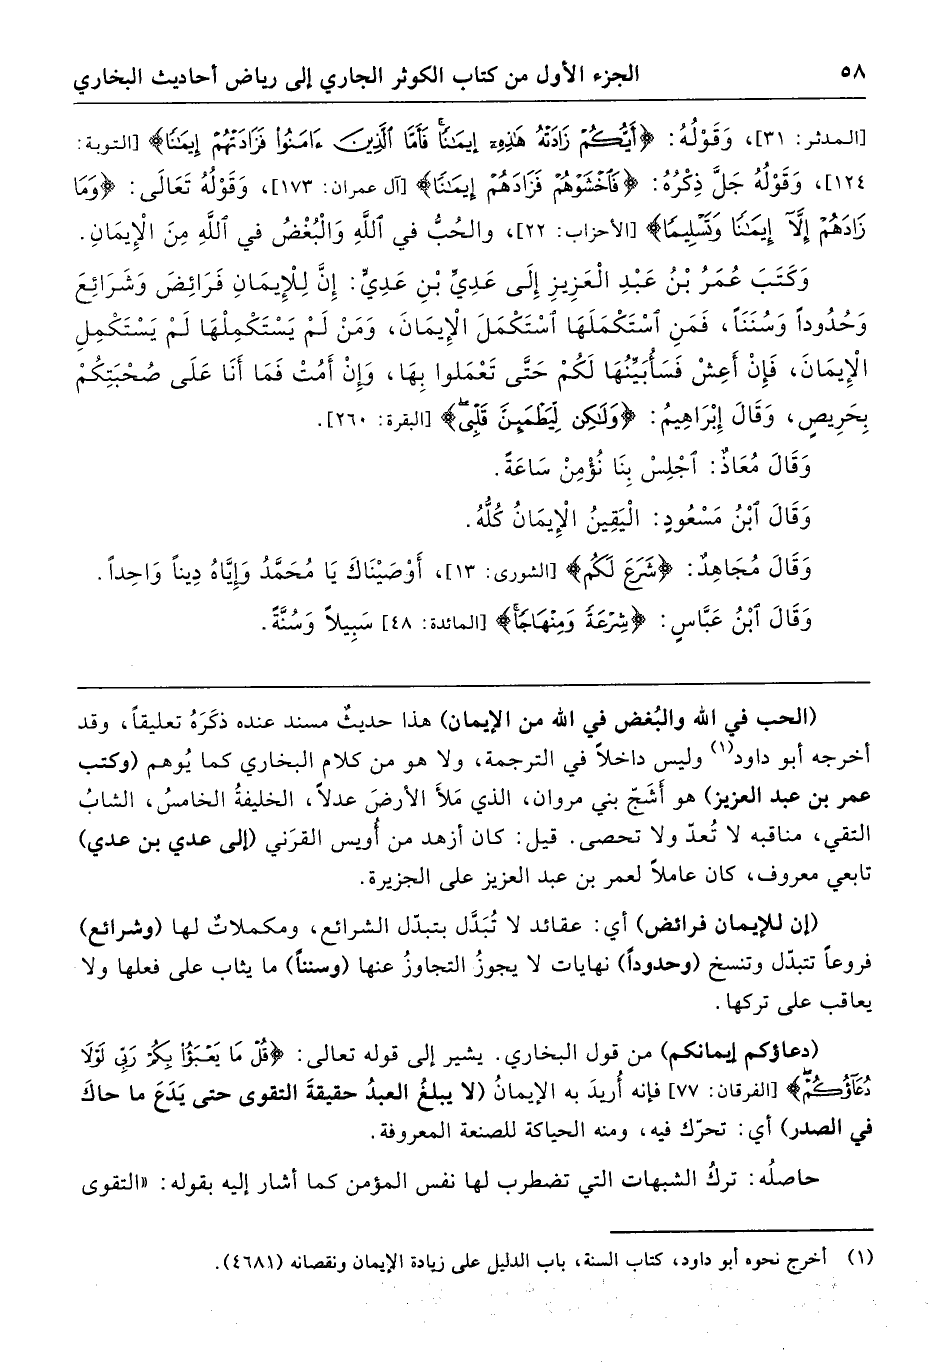 ٥٨ الجزء الأول من كتاب الكوثر الجاري إلى رياض أحاديث البخاري
[المدثر: ٣١]، وَقَوْلُهُ: ﴿أَيُّكُمْ زَادَتْهُ هَٰذِهِۦٓ إِيمَٰنًاۚ فَأَمَّا ٱلَّذِينَ ءَامَنُوا۟ فَزَادَتْهُمْ إِيمَٰنًا﴾ [التوبة:
١٢٤]، وَقَوْلُهُ جَلَّ ذِكْرُهُ: ﴿فَٱخْشَوْهُمْ فَزَادَهُمْ إِيمَٰنًا﴾ [آل عمران: ١٧٣]، وَقَوْلُهُ تَعَالَى: ﴿وَمَا
زَادَهُمْ إِلَّآ إِيمَٰنًا وَتَسْلِيمًا﴾ [الأحزاب: ٢٢]، والحُبُّ في ٱللَّهِ وَالْبُغْضُ في ٱللَّهِ مِنَ الْإِيمَانِ.
وَكَتَبَ عُمَرُ بْنُ عَبْدِ الْعَزِيزِ إِلَى عَدِيِّ بْنِ عَدِيٍّ: إِنَّ لِلْإِيمَانِ فَرَائِضَ وَشَرَائِعَ
وَحُدُوداً وَسُنَناً، فَمَنِ ٱسْتَكْمَلَهَا ٱسْتَكْمَلَ الْإِيمَانَ، وَمَنْ لَمْ يَسْتَكْمِلْهَا لَمْ يَسْتَكْمِلِ
الْإِيمَانَ، فَإِنْ أَعِشْ فَسَأُبَيِّنُهَا لَكُمْ حَتَّى تَعْمَلُوا بِهَا، وَإِنْ أَمُتْ فَمَا أَنَا عَلَى صُحْبَتِكُمْ
بِحَرِيصٍ، وَقَالَ إِبْرَاهِيمُ: ﴿وَلَٰكِن لِّيَطْمَئِنَّ قَلْبِىۖ﴾ [البقرة: ٢٦٠].
وَقَالَ مُعَاذٌ: ٱجْلِسْ بِنَا نُؤْمِنْ سَاعَةً.
وَقَالَ ٱبْنُ مَسْعُودٍ: الْيَقِينُ الْإِيمَانُ كُلُّهُ.
وَقَالَ مُجَاهِدٌ: ﴿شَرَعَ لَكُم﴾ [الشورى: ١٣]، أَوْصَيْنَاكَ يَا مُحَمَّدُ وَإِيَّاهُ دِيناً وَاحِداً.
وَقَالَ ٱبْنُ عَبَّاسٍ: ﴿شِرْعَةً وَمِنْهَاجًاۚ﴾ [المائدة: ٤٨] سَبِيلاً وَسُنَّةً.
(الحب في الله والبُغض في الله من الإيمان) هذا حديثٌ مسند عنده ذكَرَهُ تعليقاً، وقد
أخرجه أبو داود(١) وليس داخلاً في الترجمة، ولا هو من كلام البخاري كما يُوهم (وكتب
عمر بن عبد العزيز) هو أَشَجّ بني مروان، الذي مَلأَ الأرضَ عدلاً، الخليفةُ الخامسُ، الشابُ
التقي، مناقبه لا تُعدّ ولا تحصى. قيل: كان أزهد من أُويس القرَني (إلى عدي بن عدي)
تابعي معروف، كان عاملاً لعمر بن عبد العزيز على الجزيرة.
(إن للإيمان فرائض) أي: عقائد لا تُبَدَّل بتبدّل الشرائع، ومكملاتٌ لها (وشرائع)
فروعاً تتبدّل وتنسخ (وحدوداً) نهايات لا يجوزُ التجاوزُ عنها (وسنناً) ما يثاب على فعلها ولا
يعاقب على تركها.
(دعاؤكم إيمانكم) من قول البخاري. يشير إلى قوله تعالى: ﴿قُلْ مَا يَعْبَؤُا۟ بِكُمْ رَبِّى لَوْلَا
دُعَآؤُكُمْۖ﴾ [الفرقان: ٧٧] فإنه أُريدَ به الإيمانُ (لا يبلغُ العبدُ حقيقةَ التقوى حتى يَدَعَ ما حاكَ
في الصدر) أي: تحرّك فيه، ومنه الحياكة للصنعة المعروفة.
حاصلُه: تركُ الشبهات التي تضطرب لها نفس المؤمن كما أشار إليه بقوله: «التقوى
(١) أخرج نحوه أبو داود، كتاب السنة، باب الدليل على زيادة الإيمان ونقصانه (٤٦٨١).